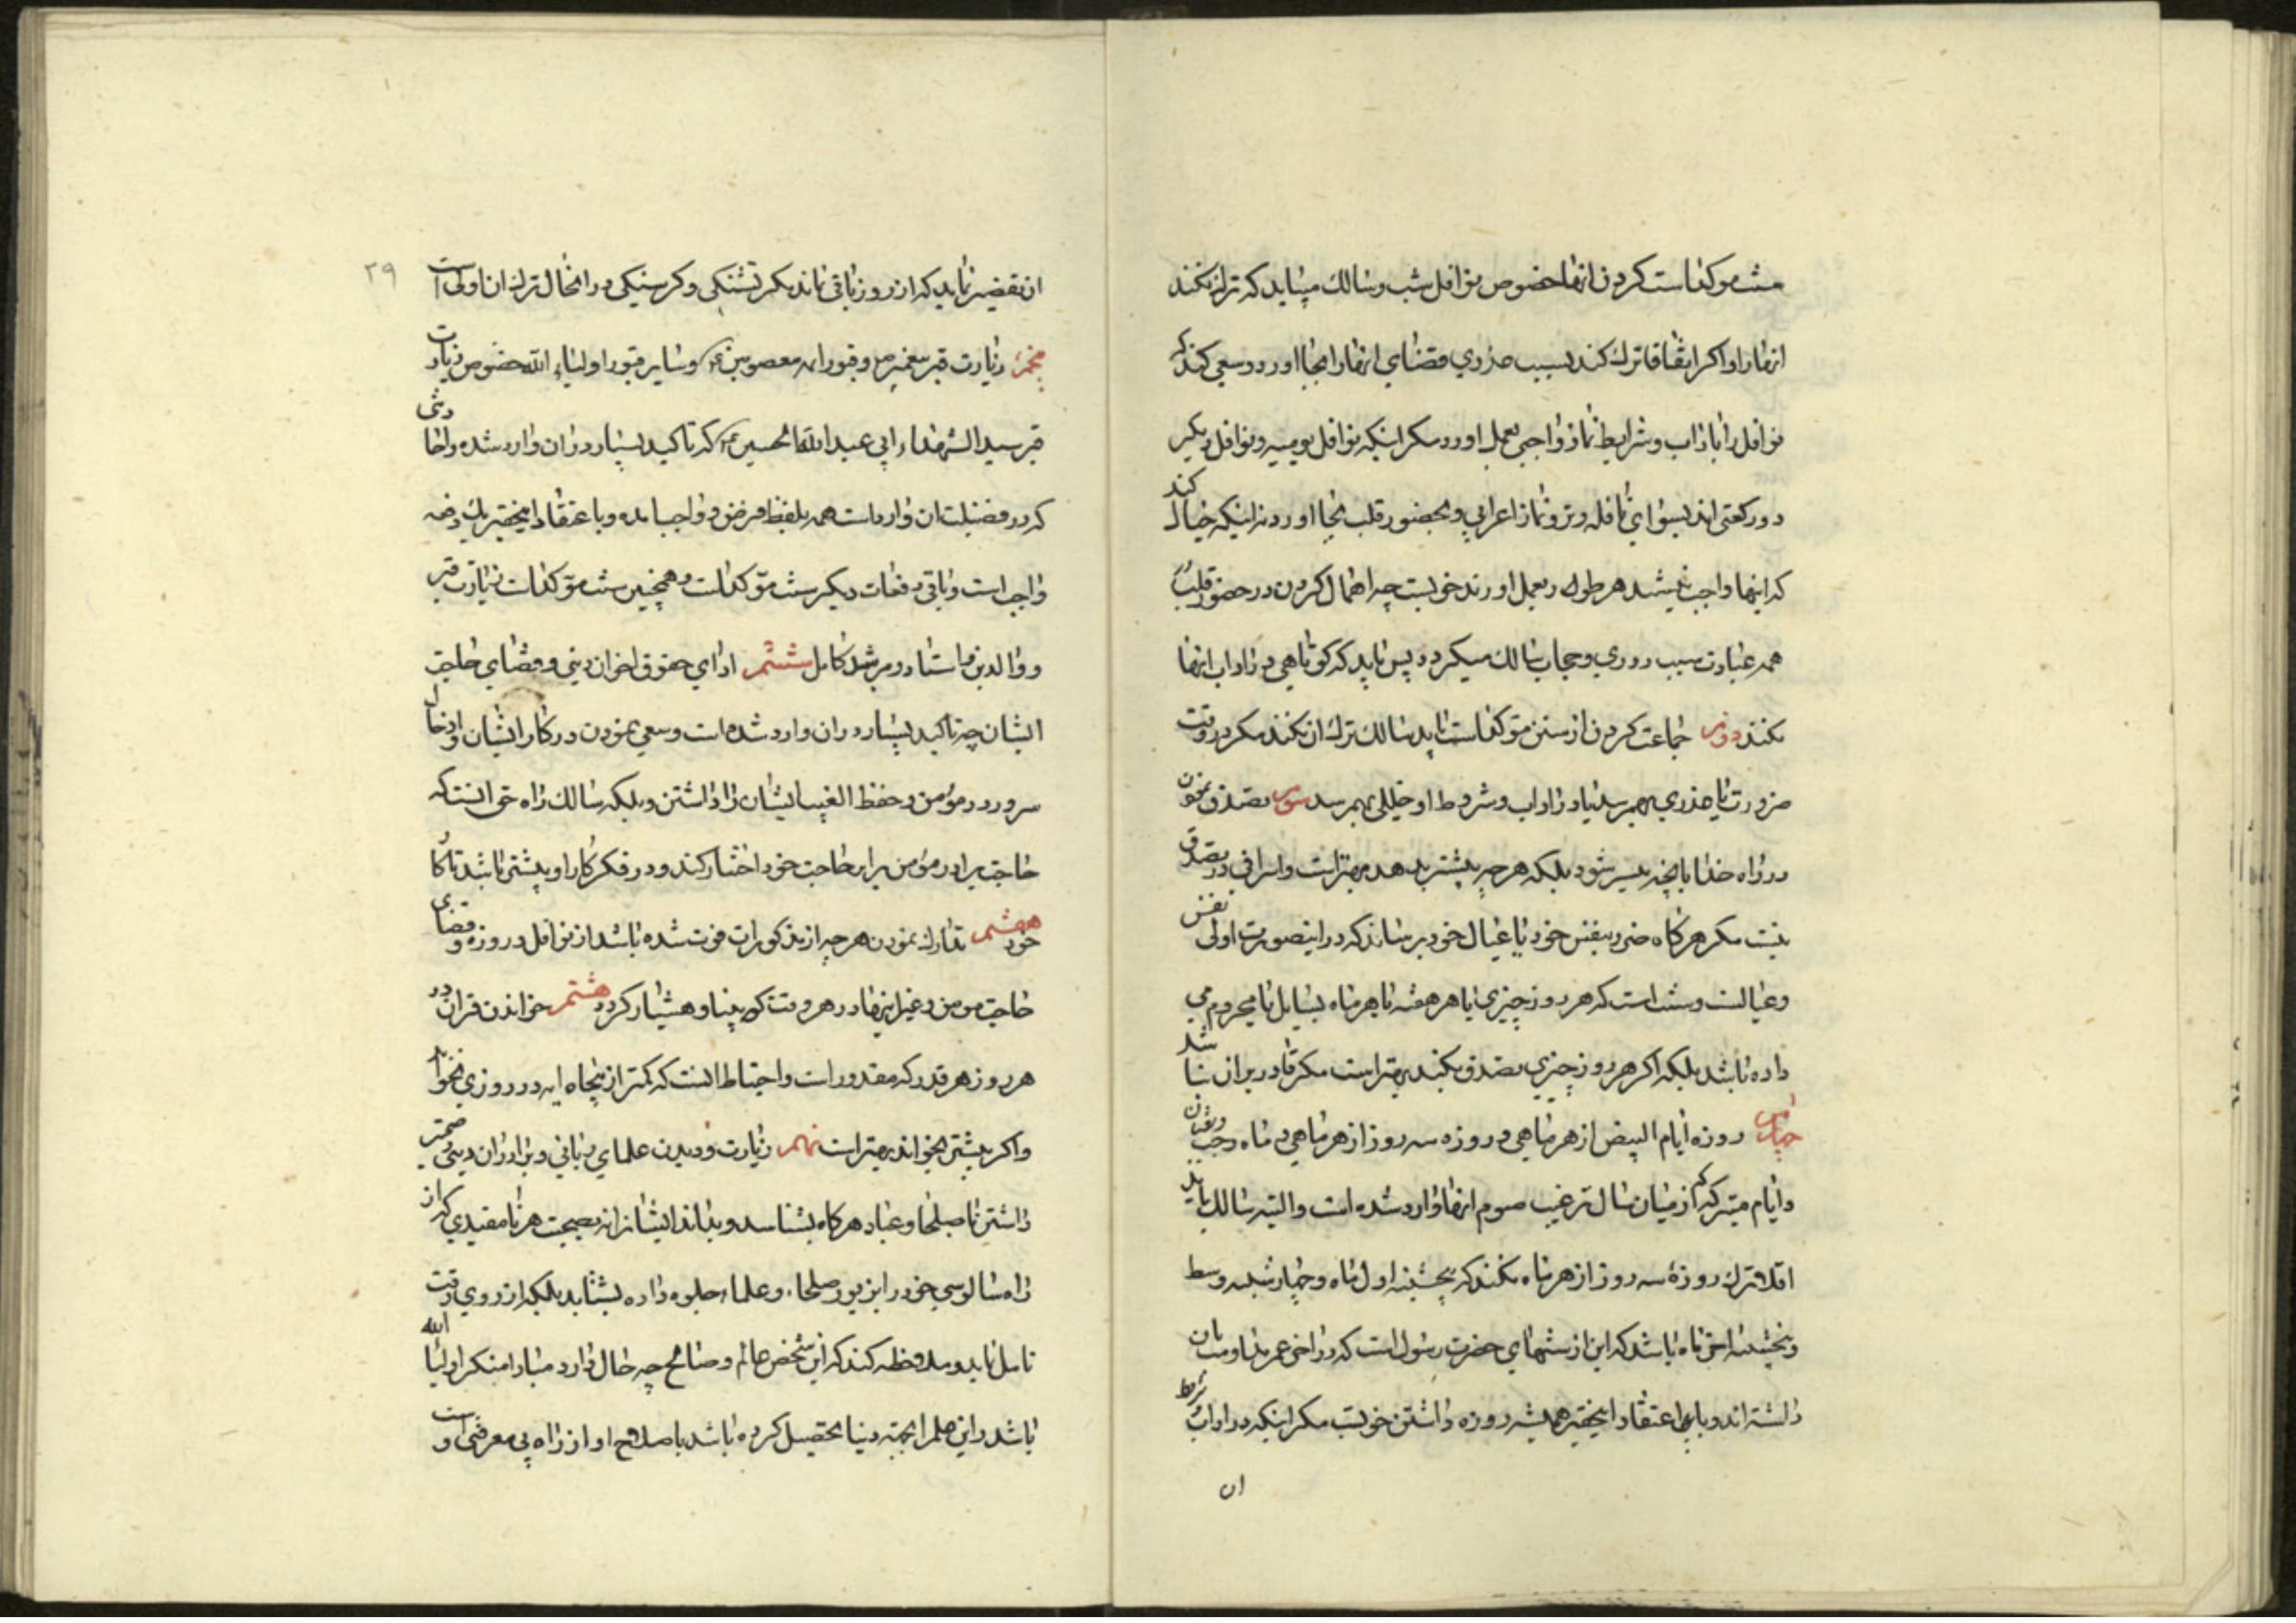 سنت موکد است کردن انها خصوص نوافل شب و سالک میباید که ترک نکند
انها را و اکر اتفاقا ترک کند بسبب عذری قضای انها را بجا اورد و سعی کند که
نوافل را باداب و شرایط نماز واجبی بعمل اورد مکر اینکه نوافل یومیه و نوافل دیکر
دو رکعتی اند بسوای نافله وتر و نماز اعرابی و بحضور قلب بجا اورد نه اینکه خیال کند
که اینها واجب نیستند هر طور بعمل اورند خوبست چه اهمال کردن در حضور قلب
همه عبادت سبب دوری و حجاب سالک میکردد پس باید که کوتاهی در اداب انها
نکنند دوم جماعت کردن از سنن موکد است باید سالک ترک ان نکند مکر در وقت
ضرورت یا عذری بهم رسد یا در اداب و شروط او خللی بهم رسد سوم تصدق نمودن
در راه خدا بانچه میسر شود بلکه هر چه بیشتر بدهد بهتر است و اسرافی در تصدق
نیست مکر هرکاه ضرر بنفس خود یا عیال خود برساند که در اینصورت اولی نفس
و عیالست و سنت است که هر روز چیزی یا هر هفته یا هر ماه بسایل یا محروم می
داده باشد بلکه اکر هر روز چیزی تصدق بکند بهتر است مکر قادر بران نباشد
چهارم روزه ایام البیض از هر ماهی و روزه سه روز از هر ماهی و ماه رجب و شعبان
و ایام متبرکه که از میان سال ترغیب صوم انها وارد شده است و البته سالک باید
اقلا ترک روزه سه روز از هر ماه نکند که پنجشنبه اول ماه و چهارشنبه وسط
و پنجشنبه اخر ماه باشد که این از سنتهای حضرت رسول است که در اخر عمر بنا و مبان
داشته اند و با اعتقاد اینحقیر همیشه روزه داشتن خوبست مکر اینکه در اداب شروط
ان
۲۹
ان تقصیر نماید که از روز باقی نماند مکر تشنکی و کرسنکی در انحال ترک ان اولی است
پنجم زیارت قبر پیغمبر ص و قبور ائمه معصومین ع و سایر قبور اولیاء الله خصوص زیارت
قبر سید الشهداء ابی عبد الله الحسین ع که تاکید بسیار در ان وارد شده و احادیثی
که در فضیلت ان وارد است همه بلفظ فرض و واجب امده و با عتقاد اینحقیر یک دفعه
واجب است و باقی دفعات دیکر سنت موکد است و همچنین سنت موکد است زیارت قبر
و والدین و استاد و مرشد کامل ششم ادای حقوق اخوان دینی و قضای حاجت
ایشان چه تاکید بسیار در ان وارد شده است و سعی نمودن در کار ایشان و ادخال
سرور در مومن و حفظ الغیب ایشان را داشتن و بلکه سالک راه حق انست که
حاجت برادر مومن برابر حاجت خود اختیار کند و در فکر کار او بیشتر باشد تا کار
خود هفتم تدارک نمودن هر چه از مذکورات فوت شده باشد از نوافل و روزه و قضای
حاجت مومن و غیر اینها در هر وقت که بینا و هشیار کردد هشتم خواندن قران در
هر روز هر قدر که مقدور است و احتیاط انست که کمتر از پنجاه ایه در روزی نخواند
و اکر بیشتر بخواند بهتر است نهم زیارت و دیدن علمای ربانی و برادران دینی و صحبت
داشتن با صلحا و عباد هرکاه بشناسد و بداند ایشانرا نه بصحبت هر نامقیدی که از
راه سالوسی خود را بزیور صلحاء و علماء جلوه داده بشتابد بلکه از روی وقت
تامل نماید و ملاحظه کند که این شخص عالم و صالح چه حال دارد مبادا منکر اولیا الله
باشد و این علم را بجهته دنیا تحصیل کرده باشد یا صلاح او از راه بی معرفتی است و